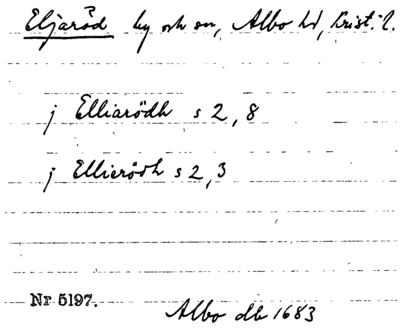 Eljaröd by och sn, Albo hd, Krist. l.
j Elliarödh s 2, 8
j Ellierödh s 2, 3
Nr 5197.
Albo db 1683